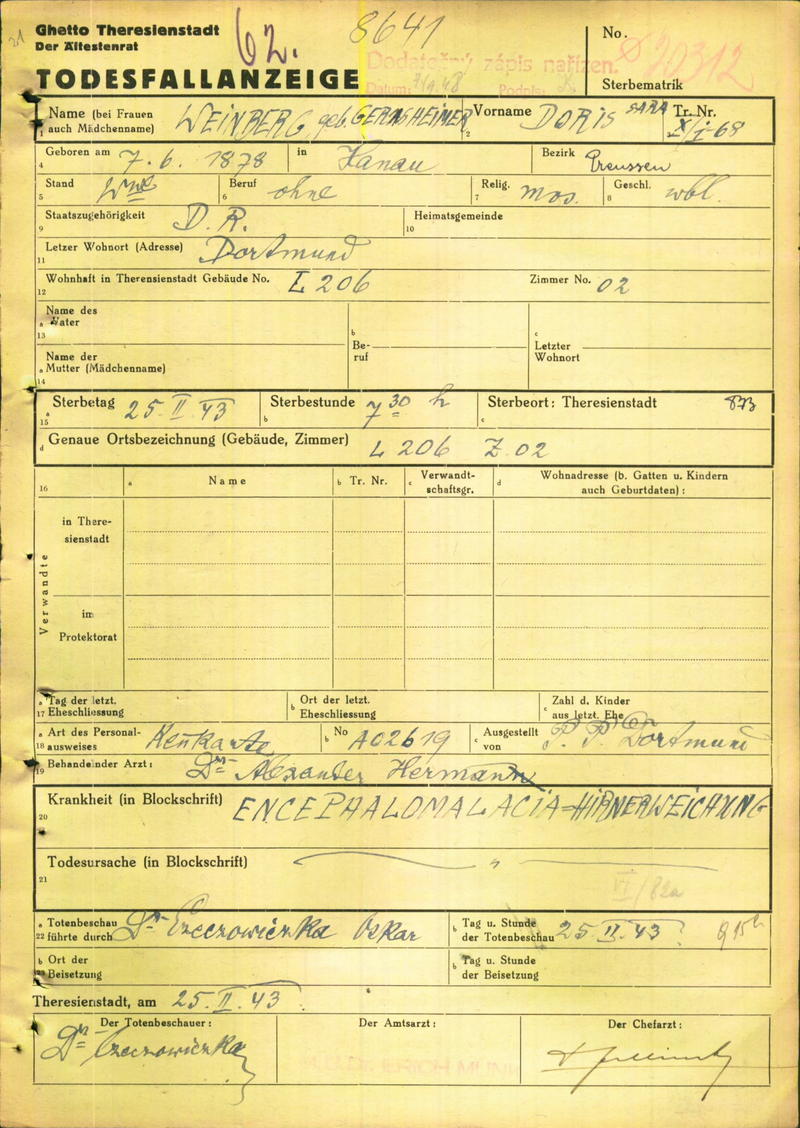 21
Ghetto Theresienstadt
Der Ältestenrat
62.
8641
No.
20312
TODESFALLANZEIGE
Dodatečný zápis nařízen.
Datum: Podpis:
Sterbematrik
Name (bei Frauen auch Mädchenname) WEINBERG geb. GERNSHEIMER
1
Vorname DORIS SARA
2
Tr. Nr. X/1-68
Geboren am 7. 6. 1878 in Hanau Bezirk Preussen
4
Stand Wwe Beruf ohne Relig. mos. Geschl. wbl.
5 6 7 8
Staatszugehörigkeit D. R. Heimatsgemeinde
9 10
Letzer Wohnort (Adresse) Dortmund
11
Wohnhaft in Theresienstadt Gebäude No. L 206 Zimmer No. 02
12
Name des
a Vater
13
b Beruf
c Letzter Wohnort
Name der
a Mutter (Mädchenname)
14
Sterbetag 25. II. 43 Sterbestunde 7 30 h Sterbeort: Theresienstadt 873
a 15 b c
d Genaue Ortsbezeichnung (Gebäude, Zimmer) L 206 Z. 02
16 a Name b Tr. Nr. c Verwandtschaftsgr. d Wohnadresse (b. Gatten u. Kindern auch Geburtdaten):
Verwandte
in Theresienstadt
im Protektorat
a Tag der letzt.
17 Eheschliessung
b Ort der letzt. Eheschliessung
c Zahl d. Kinder aus letzt. Ehe
a Art des Personal-
18 ausweises Kennkarte
b No A02619
c Ausgestellt von P. P. Dortmund
19 Behandelnder Arzt: Dr. Alexander Hermann
Krankheit (in Blockschrift) ENCEPHALOMALACIA=HIRNERWEICHUNG
20
Todesursache (in Blockschrift)
21
VI/82a
a Totenbeschau
22 führte durch Dr. Czeczowiczka Oskar
b Tag u. Stunde der Totenbeschau 25. II. 43. 9 15 h
b Ort der Beisetzung
b Tag u. Stunde der Beisetzung
Theresienstadt, am 25. II. 43.
Der Totenbeschauer: Der Amtsarzt: Der Chefarzt:
Dr. Czeczowiczka